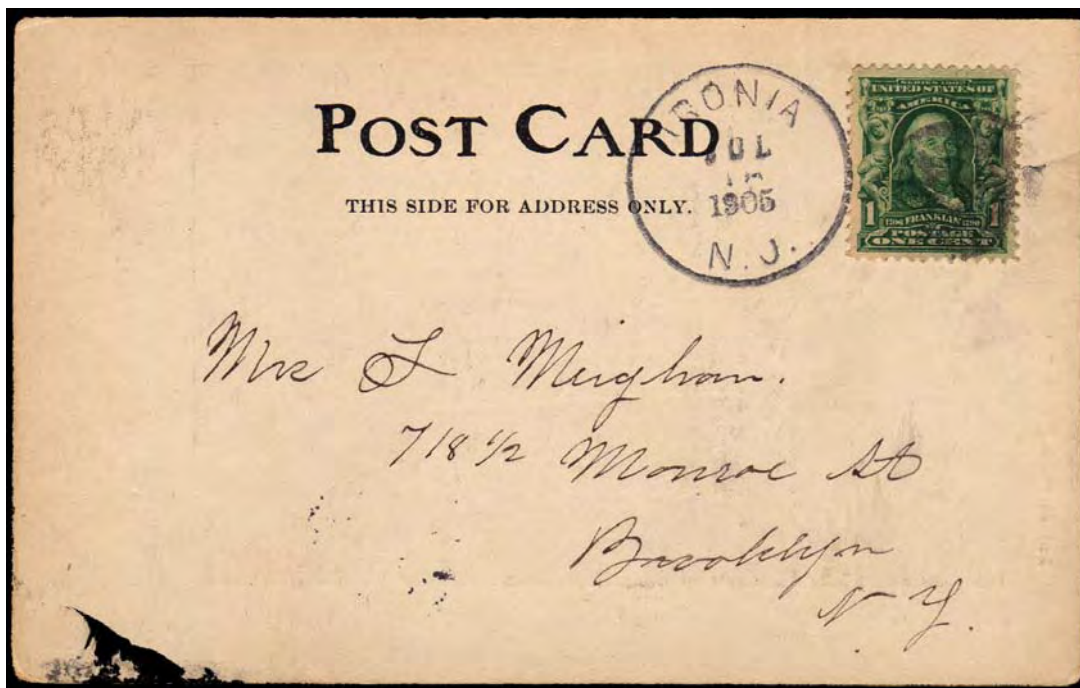 POST CARD
THIS SIDE FOR ADDRESS ONLY.
IRONIA
JUL
1905
N.J.
SERIES 1902
UNITED STATES OF
AMERICA
1 FRANKLIN 1
POSTAGE
ONE CENT
Mrs L Meighan.
718 1/2 Monroe St
Brooklyn
N Y.